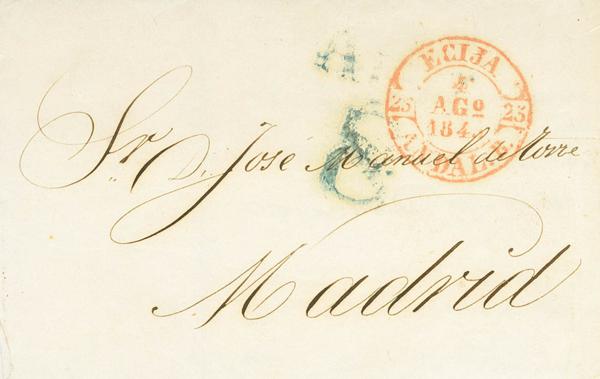 ECIJA
4
AGO
184
25 25
ANDAL.B
Sr. D. José Manuel de Torre
Madrid